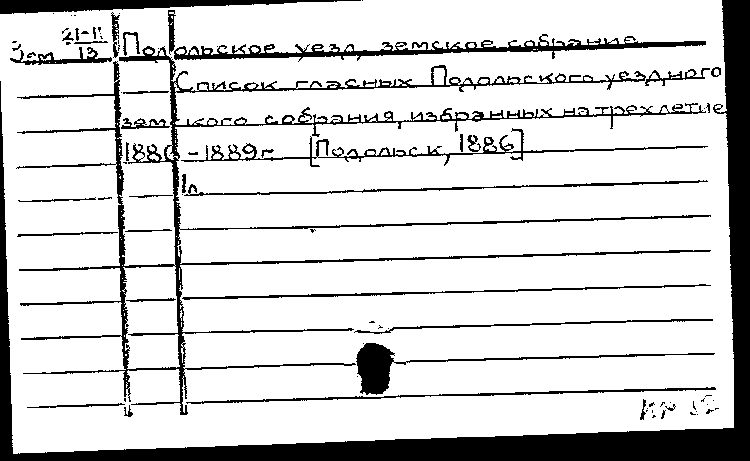 Зем 21-11/13 Подольское уезд. земское собрание
Список гласных Подольского уездного
земского собрания, избранных на трехлетие
1886-1889 г. [Подольск, 1886]
1л.